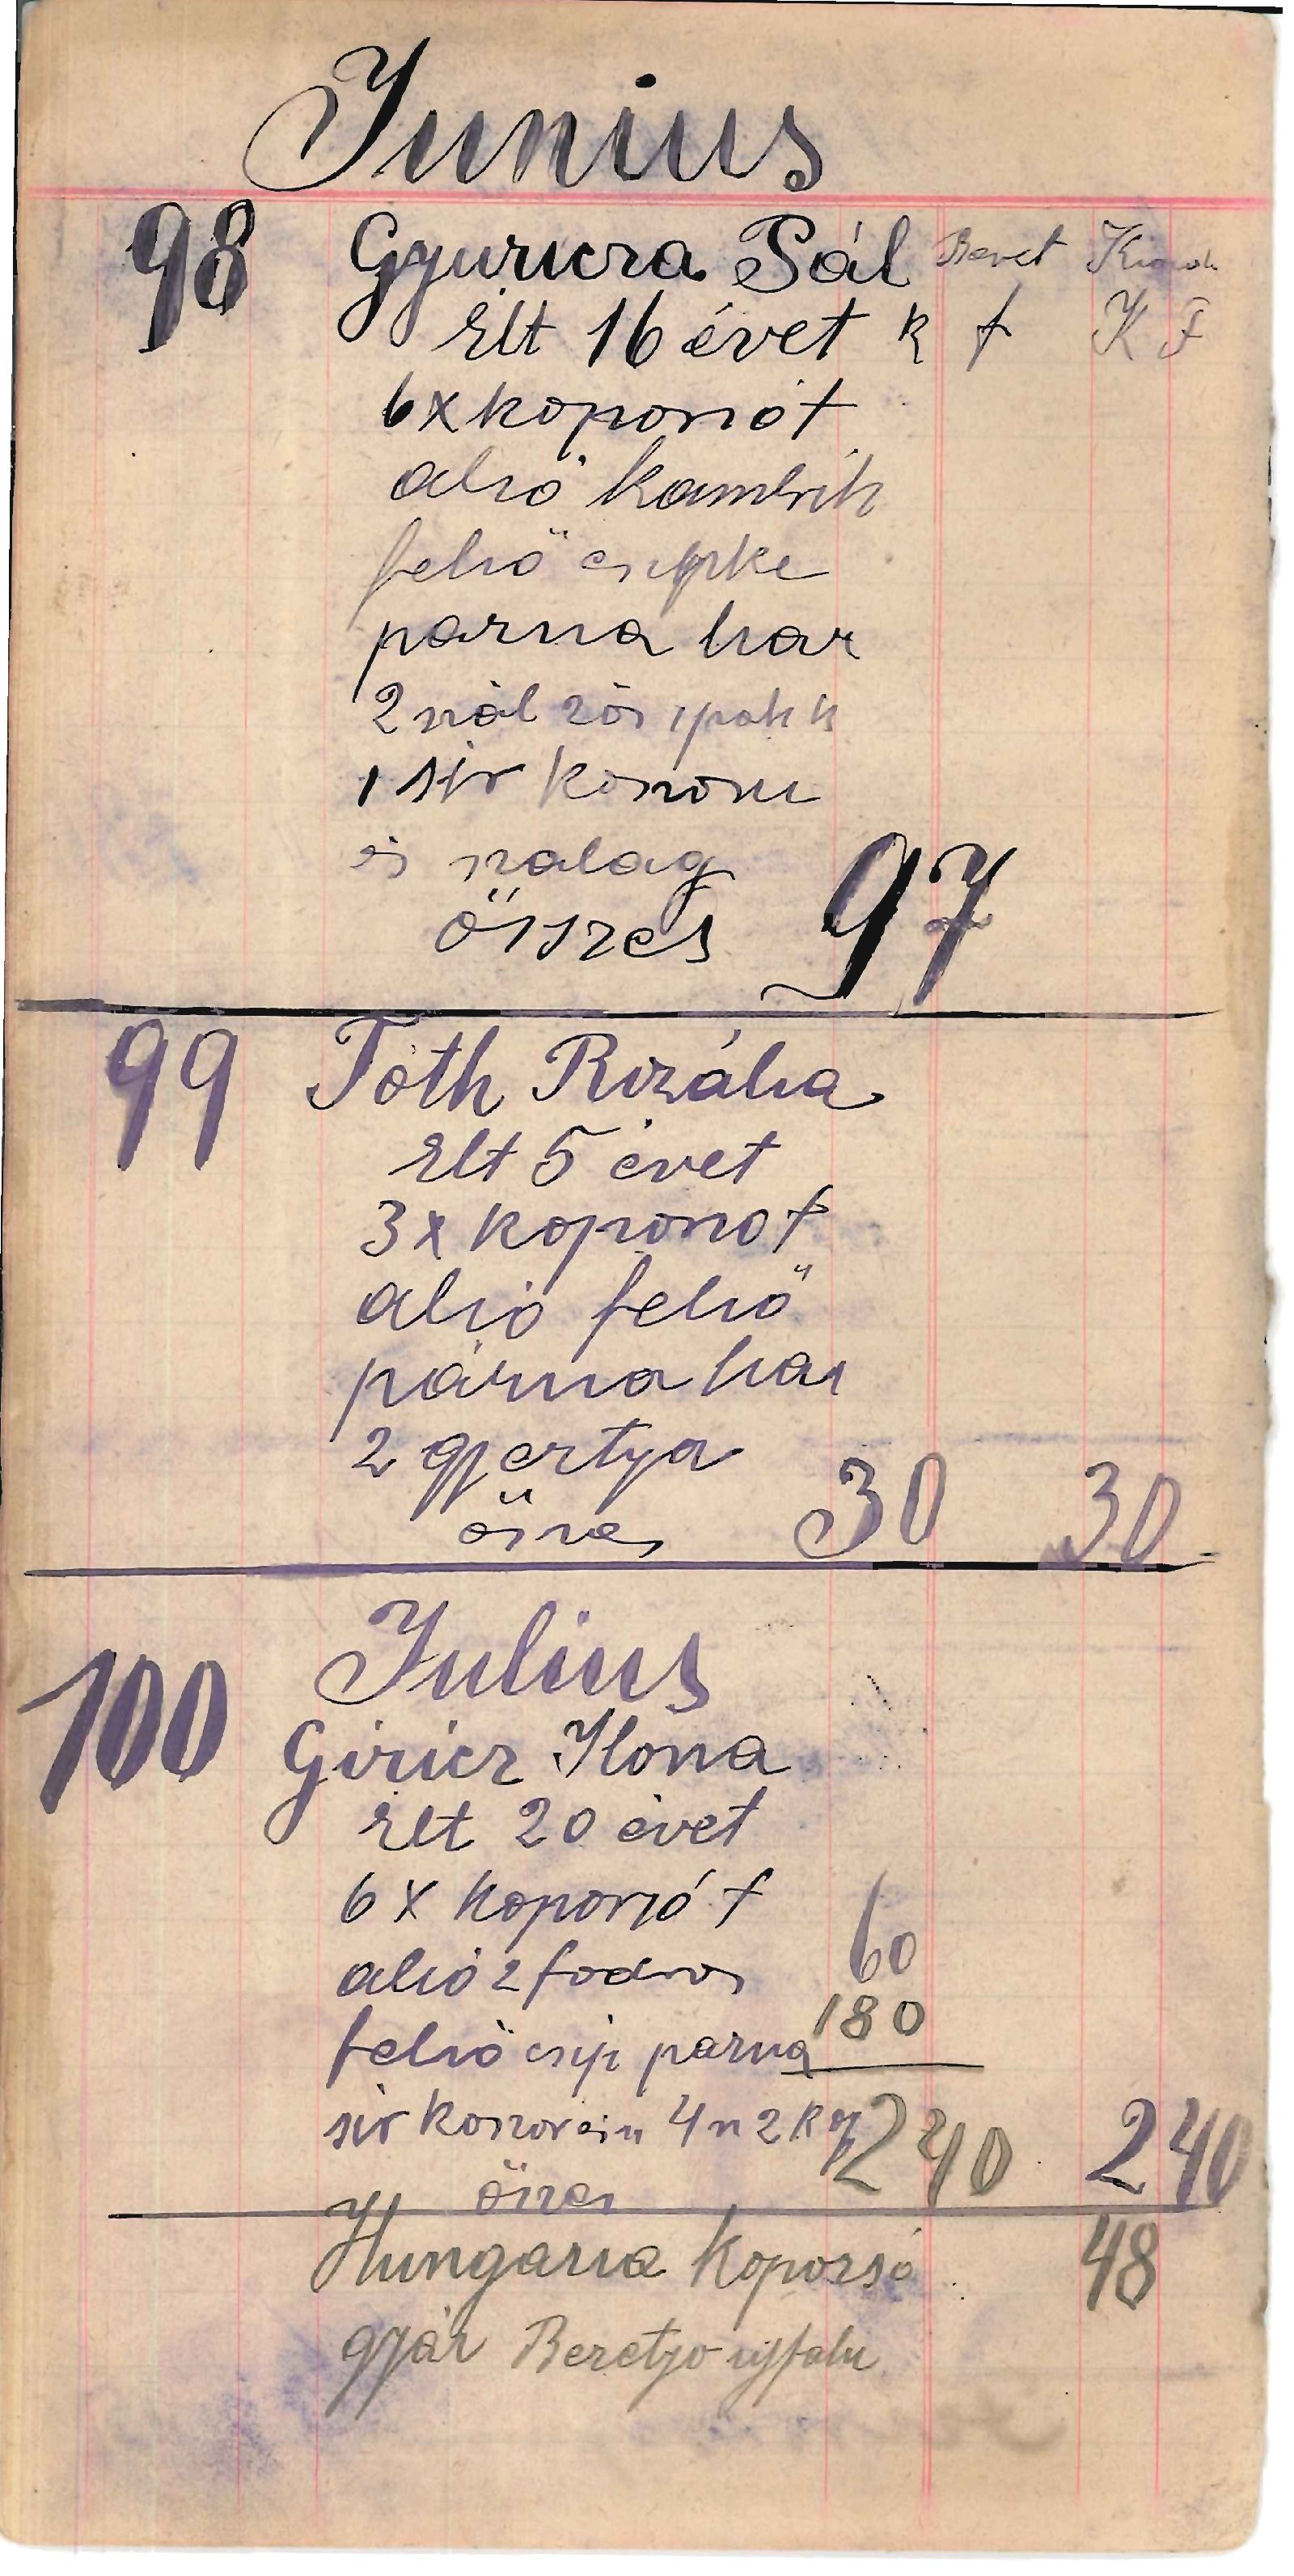 Junius
98 Gyuricza Pál Bevet Kiad
Elt 16 évet k f K F
6x koporsót
alsó kambrik
felső csipke
parna har
2 szál
1 sir koszoru
és szalag
összes 97
99 Tóth Rozália
Elt 5 évet
3x koporsot
alsó felső
párna har
2 gyertya
öszes 30 30
Julius
100 Giricz Ilona
Elt 20 évet
6x koporsót 60
alsó 2 fodros 180
felső csip parna
sir koszor 240 240
öszes
Hungaria Koporsó 48
gyár Beretyo ujfalu